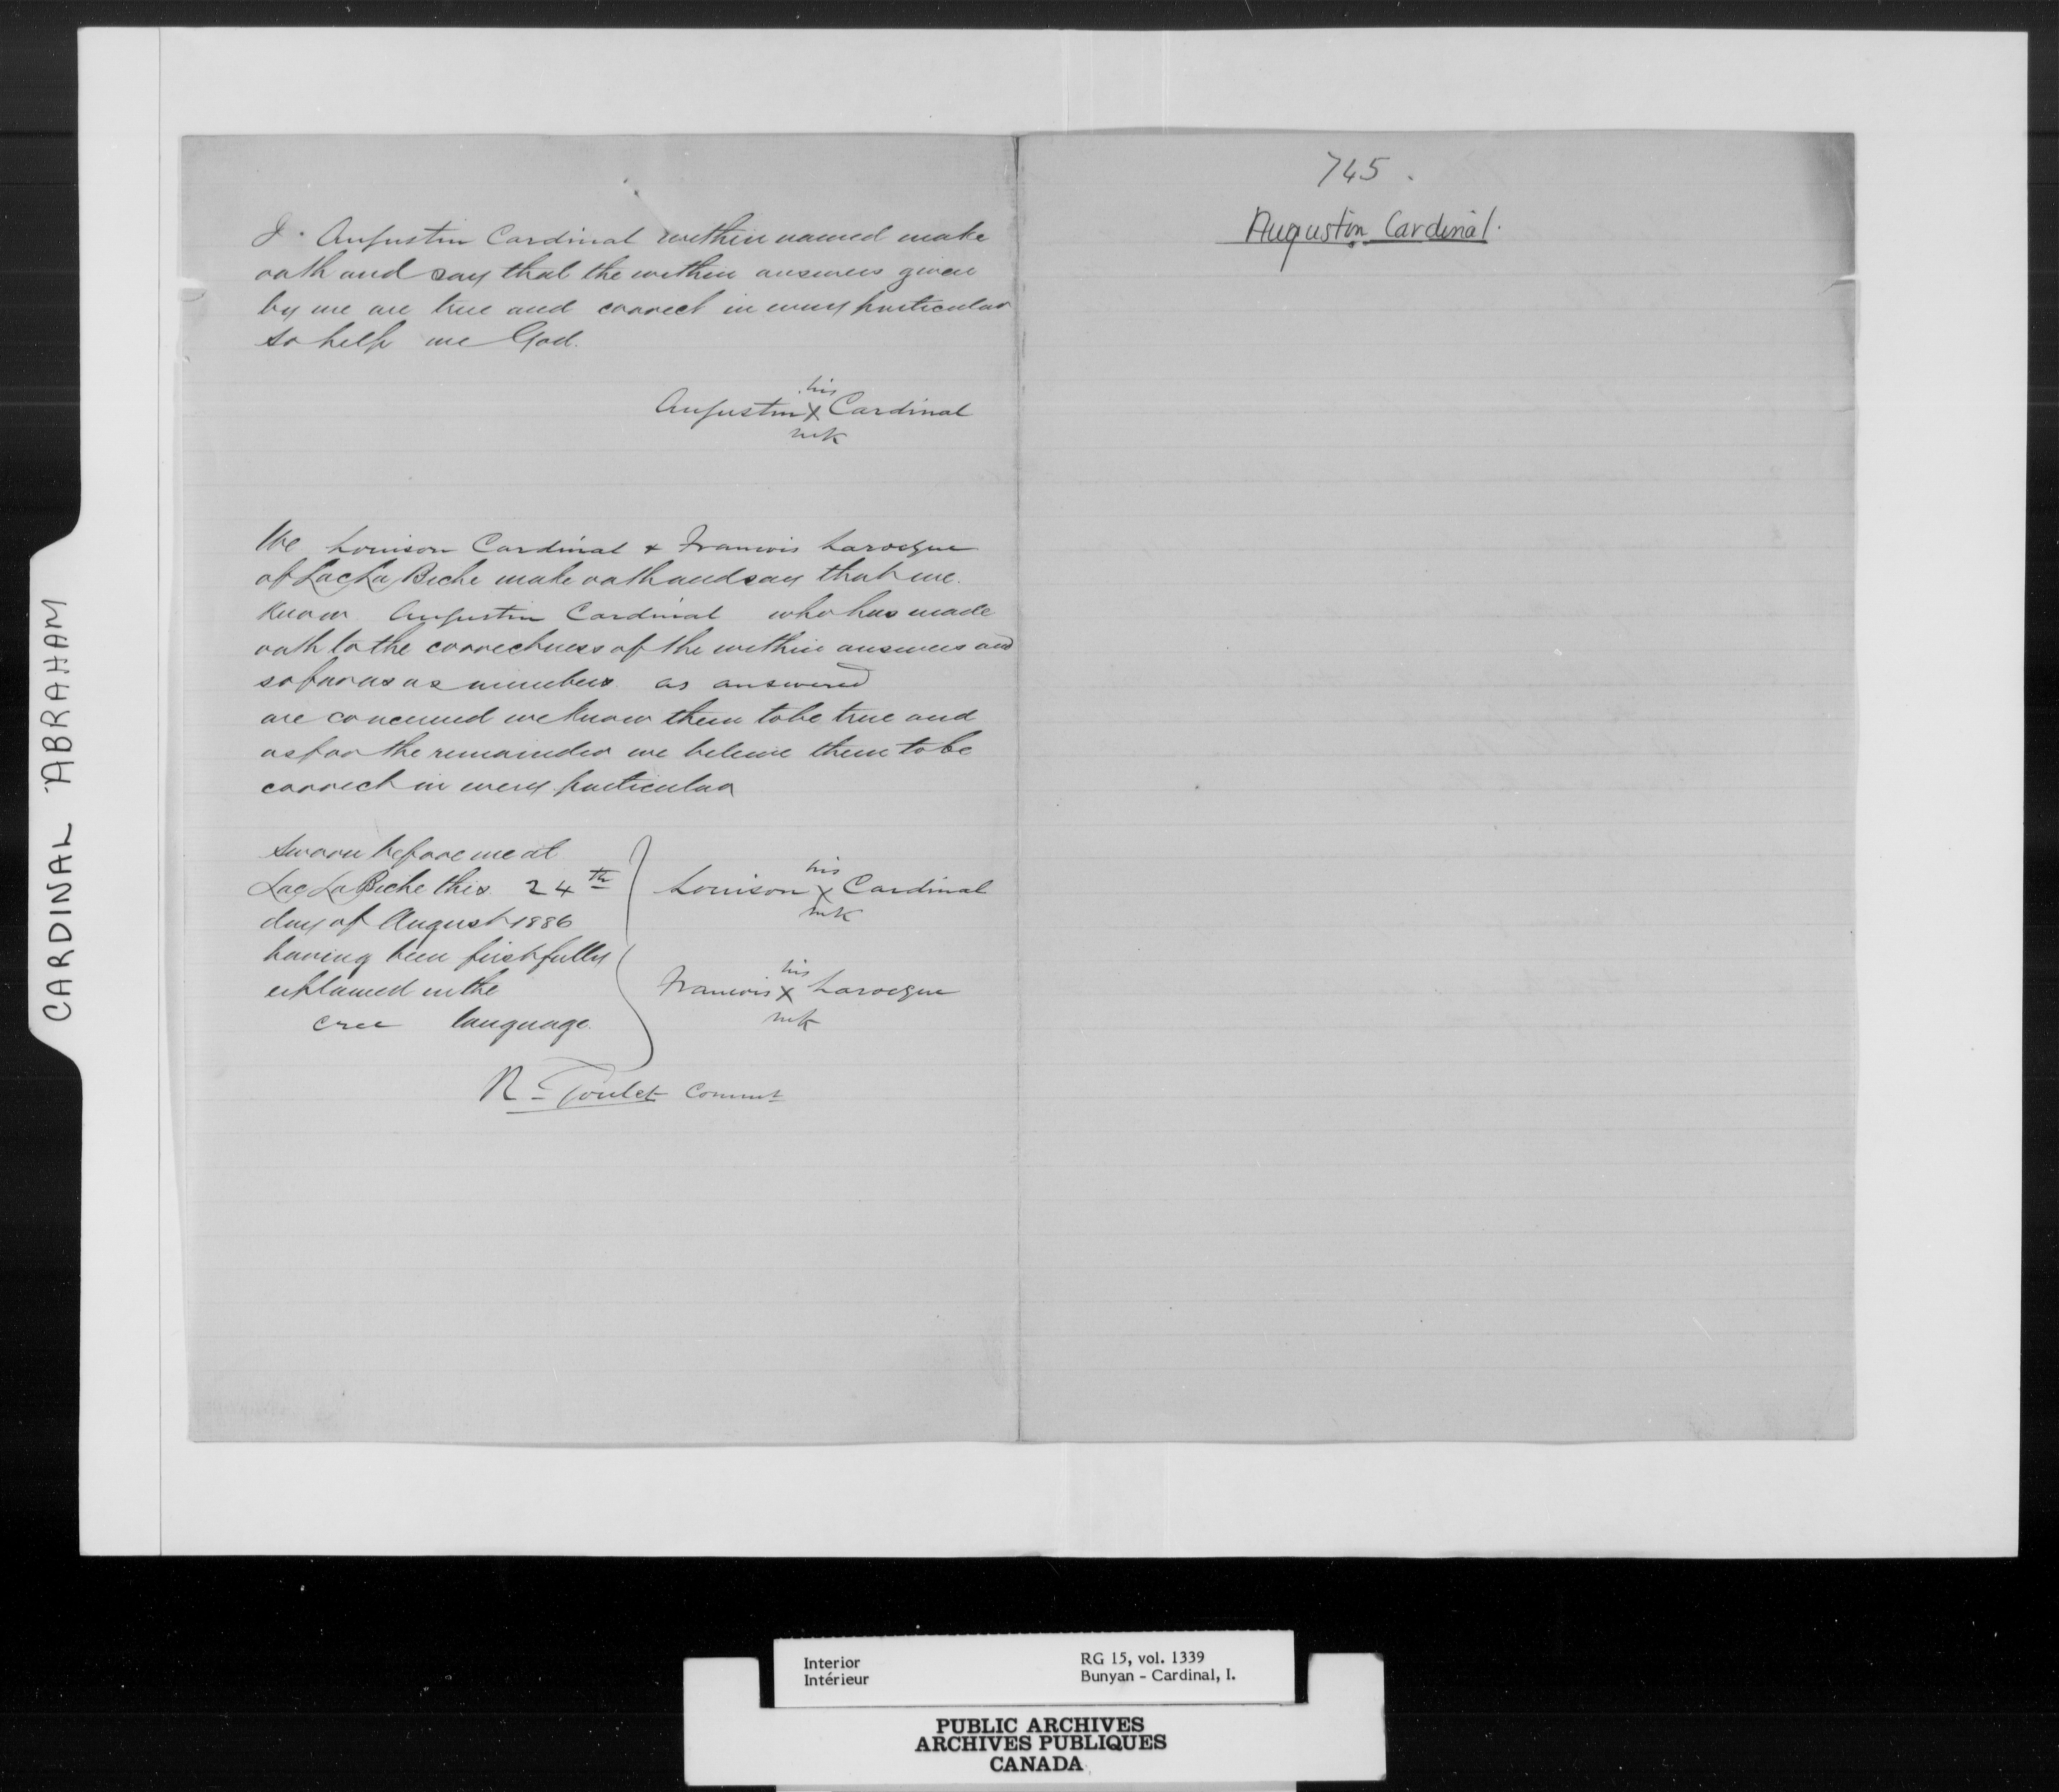 I. Augustin Cardinal within named make
oath and say that the within answers given
by me are true and correct in every particular
so help me God.
his
Augustin X Cardinal
mk
We Louison Cardinal & Francois Larocque
of Lac La Biche make oath and say that we
know Augustin Cardinal who has made
oath to the correctness of the within answers and
so far as as numbers as answered
are concerned we know them to be true and
as for the remainder we believe them to be
correct in every particular
Sworn before me at
Lac La Biche this 24th
day of August 1886
having been first fully
explained in the
cree language.
his
Louison X Cardinal
mk
his
Francois X Larocque
mk
R. Goulet Commt
745.
Augustin Cardinal.
CARDINAL ABRAHAM
Interior
Intérieur
RG 15, vol. 1339
Bunyan - Cardinal, I.
PUBLIC ARCHIVES
ARCHIVES PUBLIQUES
CANADA